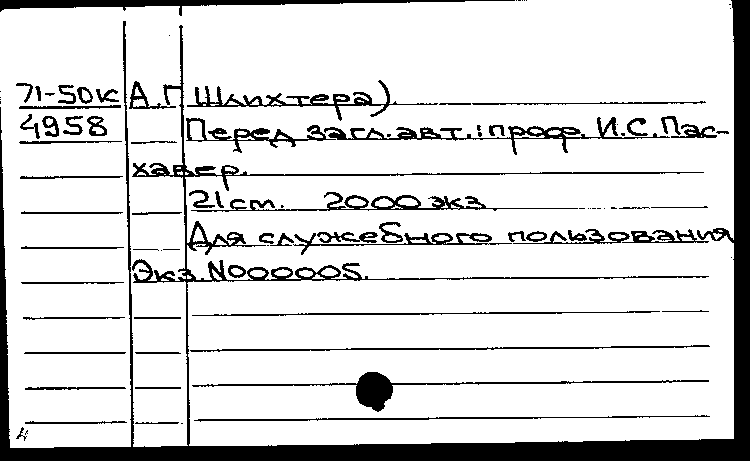 71-50к А.Г. Шлихтера).
4958 Перед загл. авт.: проф. И.С. Пас-
хавер.
21 ст. 2000 экз.
Для служебного пользования
Экз. N000005.
4